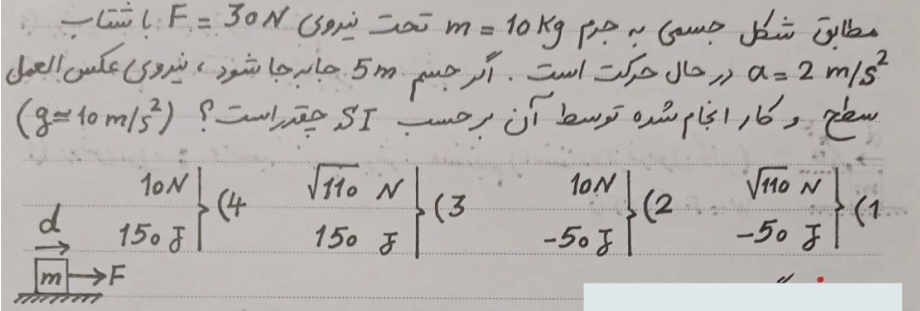 مطابق شکل جسمی به جرم m = 10 Kg تحت نیروی F = 30 N با شتاب
a = 2 m/s² در حال حرکت است. اگر جسم 5m جابه جا شود، نیروی عکس العمل
سطح و کار انجام شده توسط آن برحسب SI چقدر است؟ (g ≃ 10 m/s²)
1) √110 N
-50 J
2) 10 N
-50 J
3) √110 N
150 J
4) 10 N
150 J
d
m F